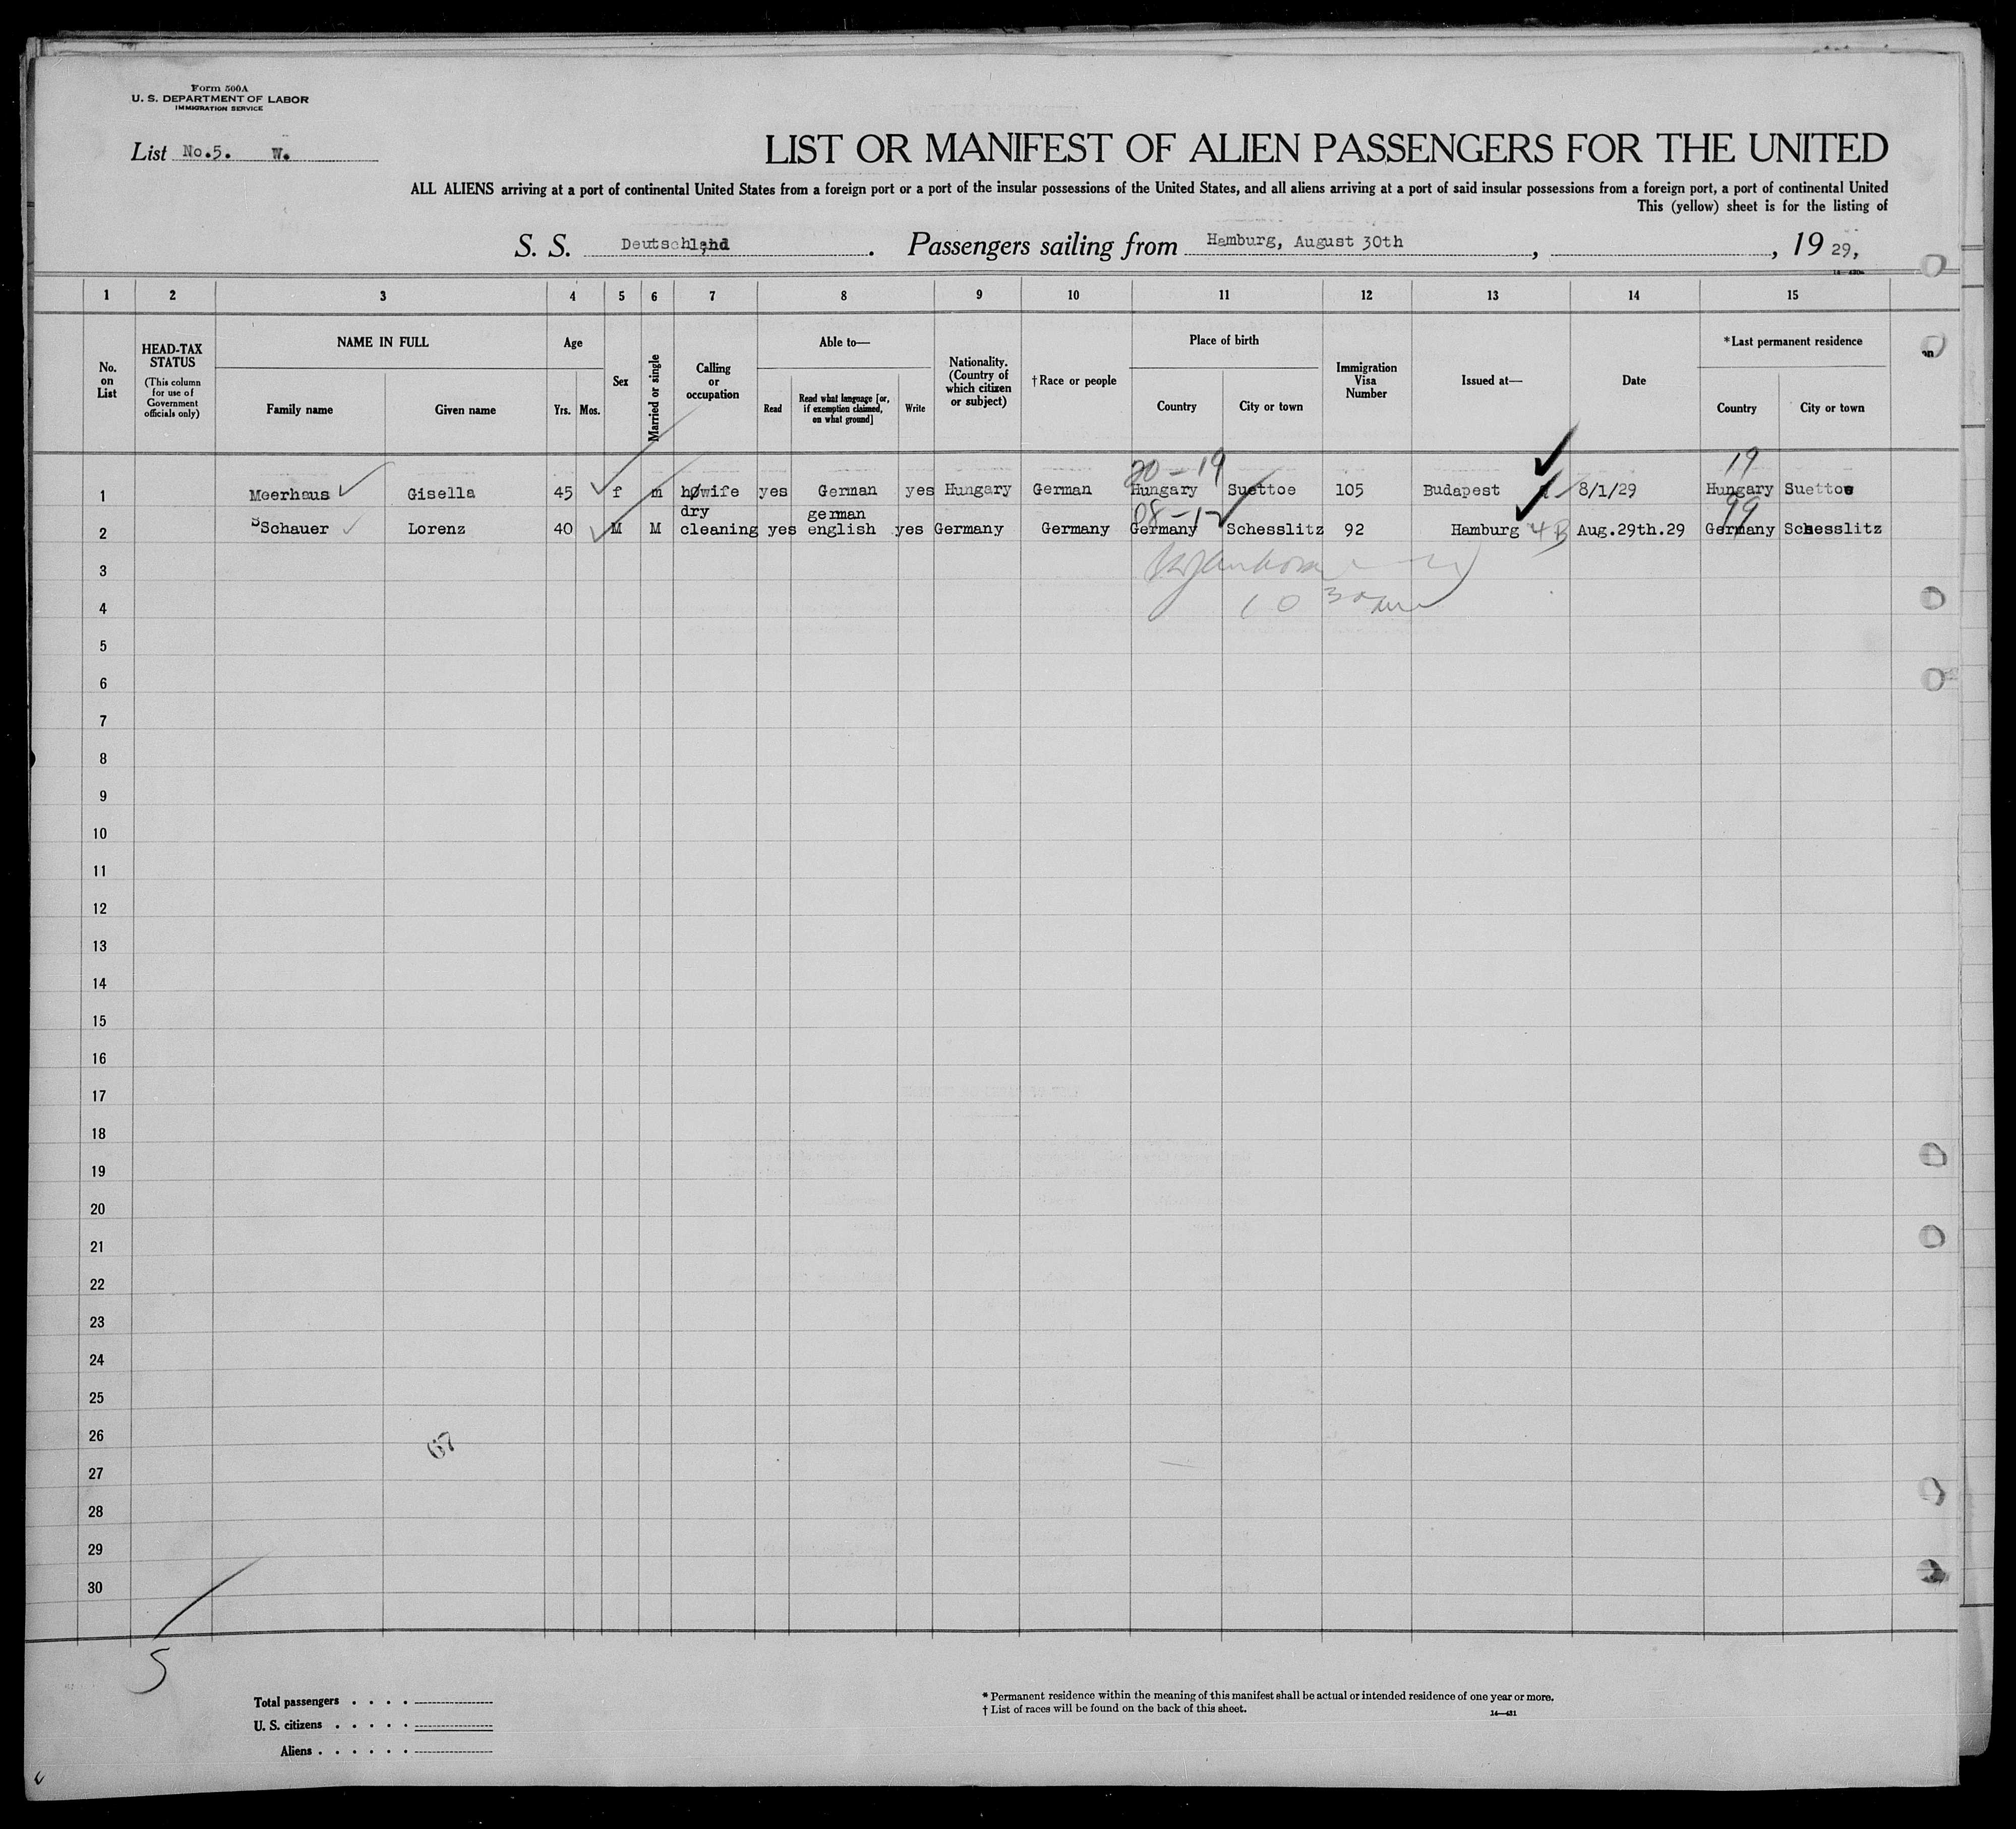 Form 500A
U. S. DEPARTMENT OF LABOR
IMMIGRATION SERVICE
List No.5. W.
LIST OR MANIFEST OF ALIEN PASSENGERS FOR THE UNITED
ALL ALIENS arriving at a port of continental United States from a foreign port or a port of the insular possessions of the United States, and all aliens arriving at a port of said insular possessions from a foreign port, a port of continental United
This (yellow) sheet is for the listing of
S. S. Deutschland. Passengers sailing from Hamburg, August 30th, , 19 29,
1 2 3 4 5 6 7 8 9 10 11 12 13 14 15
No. on List
HEAD-TAX STATUS (This column for use of Government officials only)
NAME IN FULL
Family name Given name
Age
Yrs. Mos.
Sex
Married or single
Calling or occupation
Able to—
Read
Read what language [or, if exemption claimed, on what ground]
Write
Nationality. (Country of which citizen or subject)
† Race or people
Place of birth
Country City or town
Immigration Visa Number
Issued at—
Date
* Last permanent residence
Country City or town
20-19 19
1 Meerhaus Gisella 45 f m høwife yes German yes Hungary German Hungary Suettoe 105 Budapest 8/1/29 Hungary Suettoe
dry german 99
2 Schauer Lorenz 40 M M cleaning yes english yes Germany Germany Germany Schesslitz 92 Hamburg 4B Aug.29th.29 Germany Schesslitz
3
4
5
6
7
8
9
10
11
12
13
14
15
16
17
18
19
20
21
22
23
24
25
26
67
27
28
29
30
5
Total passengers . . . .
U. S. citizens . . . . .
Aliens . . . . . .
* Permanent residence within the meaning of this manifest shall be actual or intended residence of one year or more.
† List of races will be found on the back of this sheet.
14—431